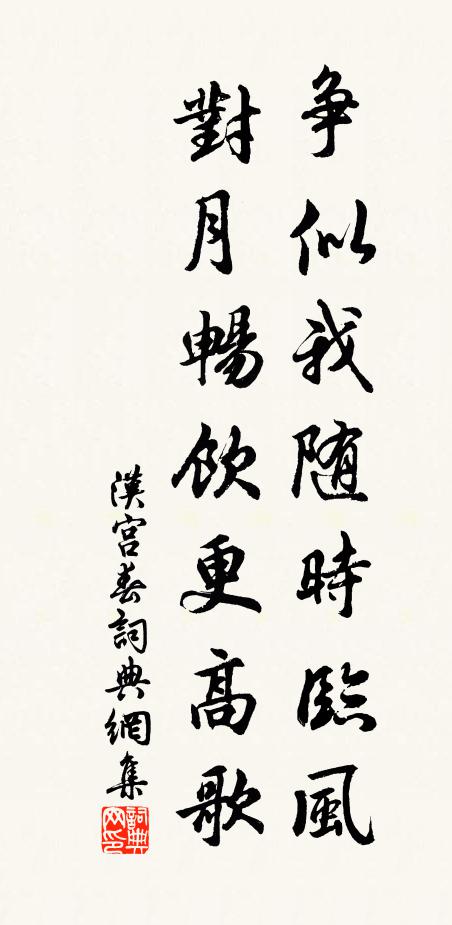 争似我随時臨風
對月暢飲更高歌
漢宮春詞典網集
詞典網印